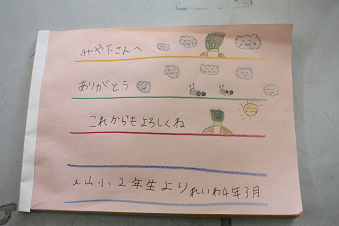 みやたさんへ
ありがとう
これからもよろしくね
山小2年生よりれいわ4年3月